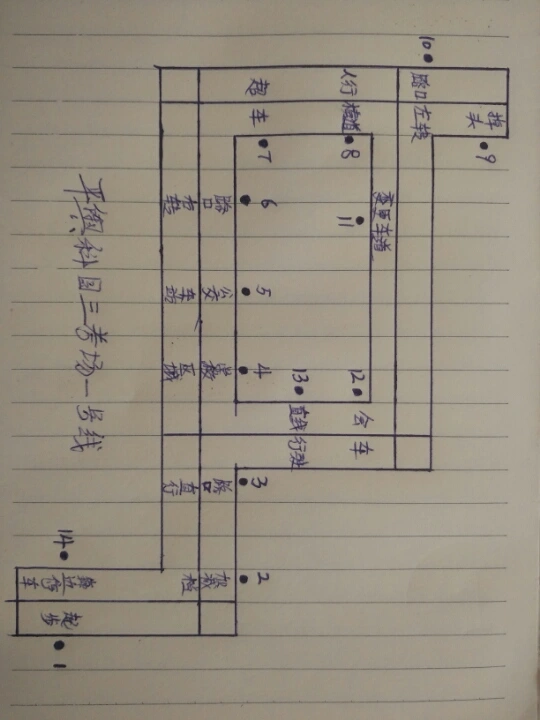 平舆科目三考场一号线
1 起步
2 加减档
3 路口直行
4 学校区域
5 公交车站
6 路口右转
7 超车
8 人行横道
9 掉头
10 路口左转
11 变更车道
12 会车
13 直线行驶
14 靠边停车